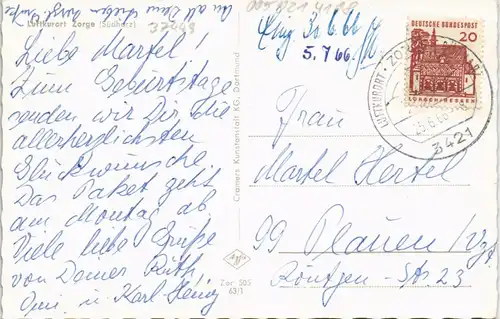 An all Deine Lieben herzl. Grüße
Luftkurort Zorge (Südharz)
37469
Liebe Martel
Zum Geburtstage
senden wir Dir die
allerherzlichsten
Glückwünsche
Das Paket geht
am Montag ab.
Viele liebe Grüße
von Deiner Ruth,
Omi u. Karl-Heinz
Cramers Kunstanstalt KG, Dortmund
Zor 505
63/1
30.6.66
5.7.66.
DEUTSCHE BUNDESPOST
20
LORSCH/HESSEN
LUFTKURORT
3421
Frau
Martel Hertel
99 Plauen / Vgt.
Röntgen-Str. 23